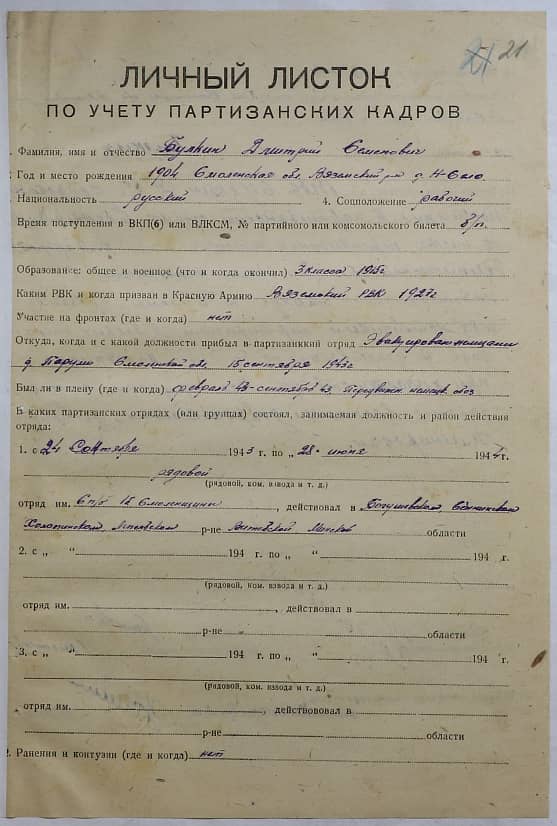 21 21
ЛИЧНЫЙ ЛИСТОК
ПО УЧЕТУ ПАРТИЗАНСКИХ КАДРОВ
Фамилия, имя и отчество Булкин Дмитрий Семенович
Год и место рождения 1904 Смоленская обл. Вяземский р-н д.
Национальность русский 4. Соцположение рабочий
Время поступления в ВКП(б) или ВЛКСМ, № партийного или комсомольского билета б/п.
Образование: общее и военное (что и когда окончил) 3 класса 1915г
Каким РВК и когда призван в Красную Армию Вяземский РВК 1927г
Участие на фронтах (где и когда) нет
Откуда, когда и с какой должности прибыл в партизанский отряд Эвакуирован немцами
д. Смоленской обл. 15 сентября 1943г
Был ли в плену (где и когда) февраль 43-сентябрь 43. немецк. обоз
В каких партизанских отрядах (или группах) состоял, занимаемая должность и район действия
отряда:
1. с 24 Сентября 1943 г. по „ 28 июня 1944 г.
рядовой
(рядовой, ком. взвода и т. д.)
отряд им. 6 п/б Смоленщины, действовал в Богушевском, Сенненском
Холопиническом, р-не Витебской Минской области
2. с „ “ 194 г. по „ “ 194 г.
(рядовой, ком. взвода и т. д.)
отряд им. , действовал в
р-не области
3. с „ “ 194 г. по „ “ 194 г.
(рядовой, ком. взвода и т. д.)
отряд им. , действововал в
р-не области
Ранения и контузии (где и когда) нет